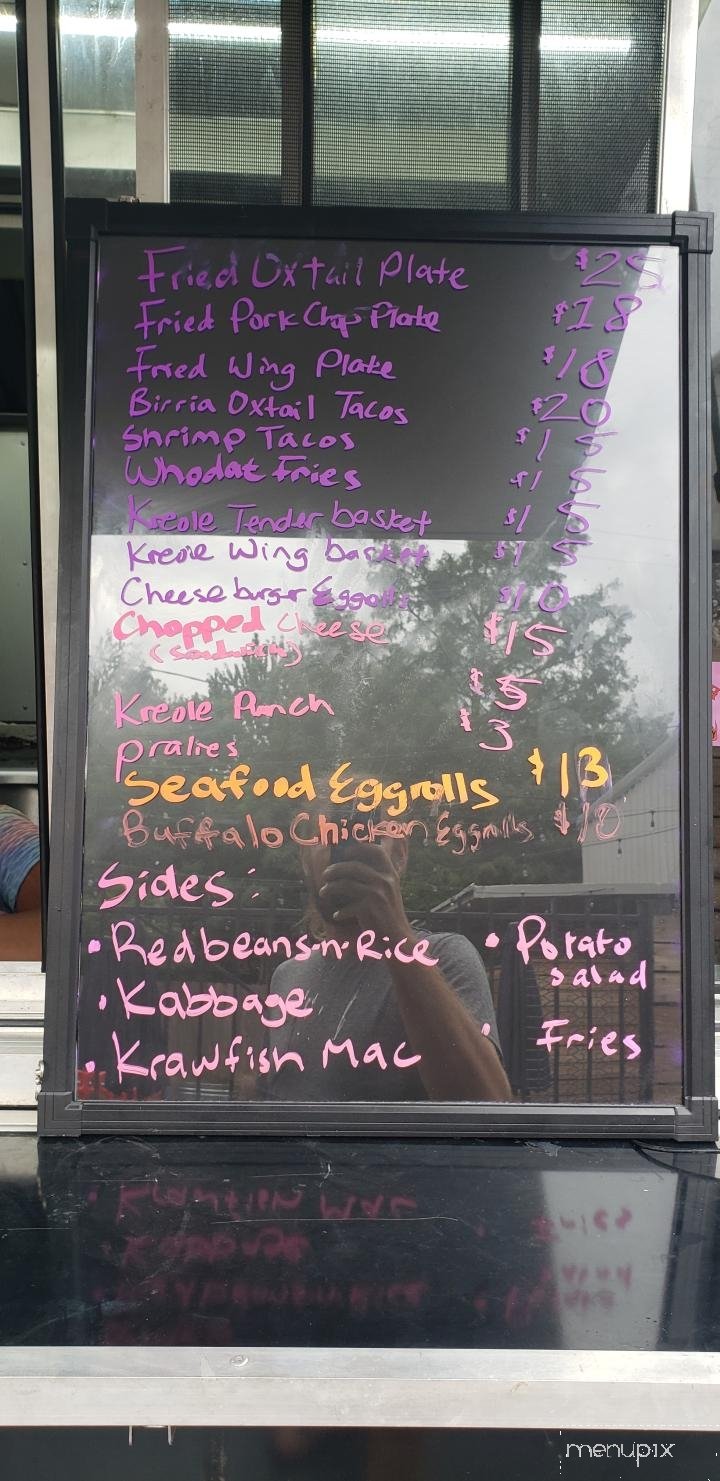 Fried Oxtail Plate $25
Fried Pork Chop Plate $18
Fried Wing Plate $18
Birria Oxtail Tacos $20
Shrimp Tacos $15
Whodat Fries $15
Kreole Tender basket $15
Kreole Wing basket $15
Cheeseburgr Eggrolls $10
Chopped Cheese $15
(Sandwich)
Kreole Punch $5
Pralies $3
Seafood Eggrolls $13
Buffalo Chicken Eggrolls $10
Sides:
• Redbeans-n-Rice • Potato salad
• Kabbage
• Krawfish Mac • Fries
menupix